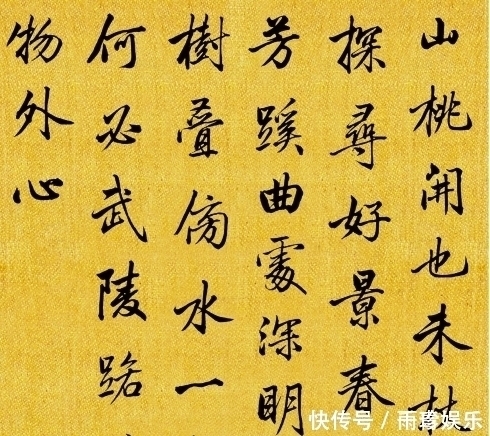 山桃開也未杖
探尋好景春
芳蹊曲處深明
樹疊傍水一
何必武陵路
物外心
快传号 /